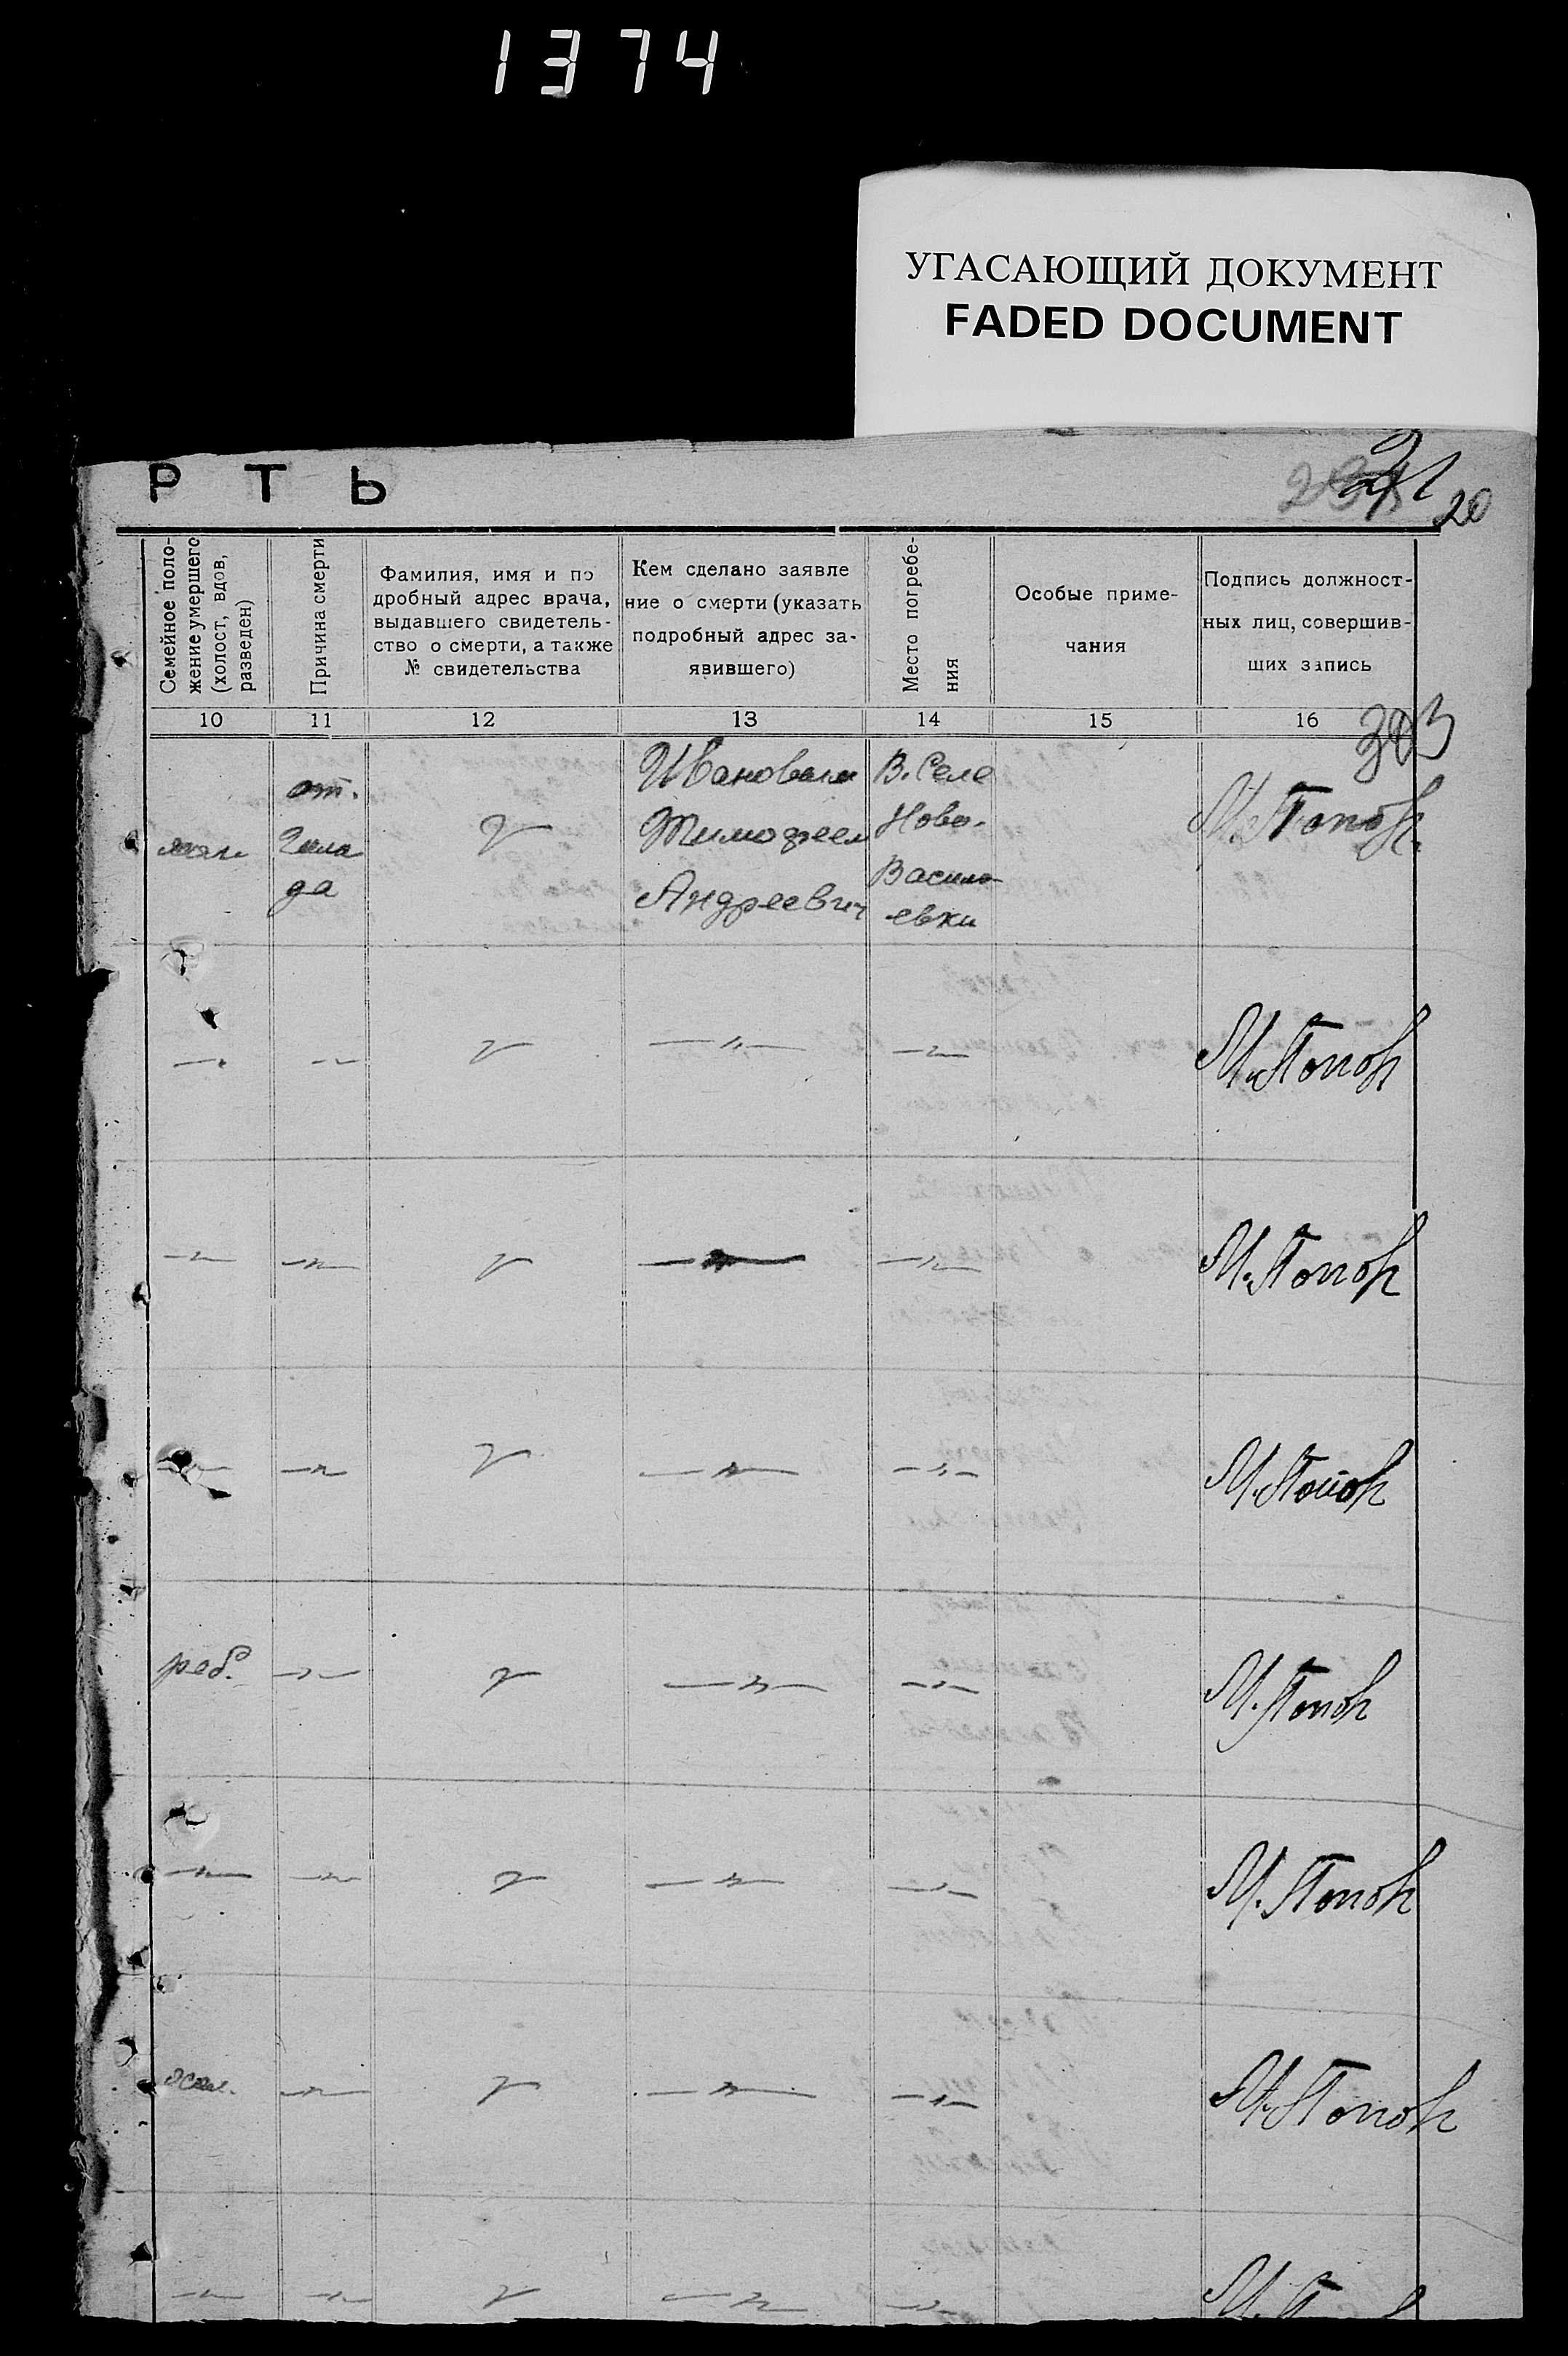 1374
УГАСАЮЩИЙ ДОКУМЕНТ
FADED DOCUMENT
Р Т Ь
21
20
Семейное поло-
жение умершего
(холост, вдов,
разведен)
Причина смерти
Фамилия, имя и по
дробный адрес врача,
выдавшего свидетель-
ство о смерти, а также
№ свидетельства
Кем сделано заявле
ние о смерти (указать
подробный адрес за-
явившего)
Место погребе-
ния
Особые приме-
чания
Подпись должност-
ных лиц, совершив-
ших запись
10 11 12 13 14 15 16
383
от.
Гола
да
Ивановым
Тимофеем
Андреевич
В. Селе
Ново-
Василь
евки
М. Попов
—"— —"— —"— —"— М. Попов
—"— —"— —"— —"— М. Попов
—"— —"— —"— —"— М. Попов
реб. —"— —"— —"— М. Попов
—"— —"— —"— —"— М. Попов
—"— —"— —"— М. Попов
—"— —"— —"— —"—